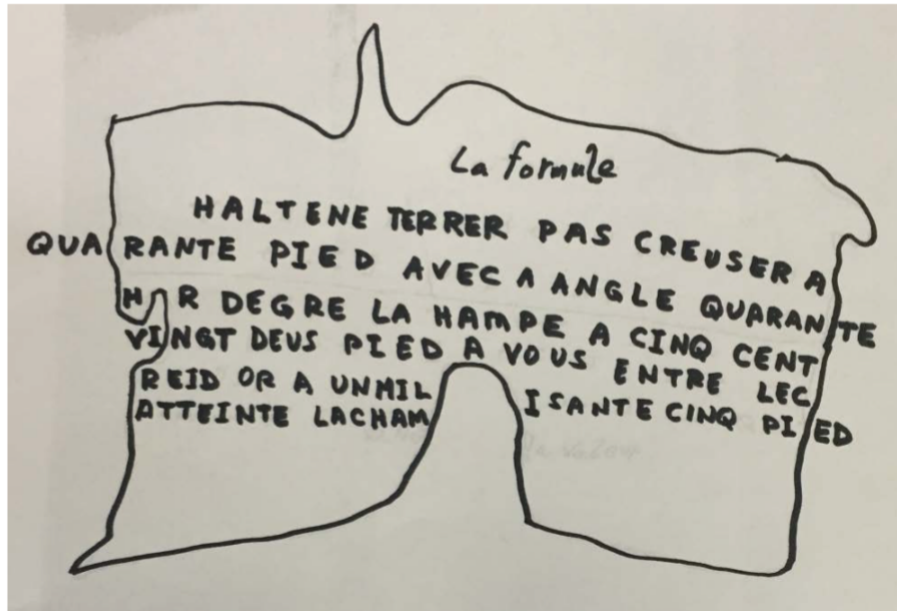 La formule
HALTENE TERRER PAS CREUSER A
QUARANTE PIED AVEC A ANGLE QUARANTE
H R DEGRE LA HAMPE A CINQ CENT
VINGT DEUS PIED A VOUS ENTRE LEC
REID OR A UNMIL ISANTE CINQ PIED
ATTEINTE LACHAM